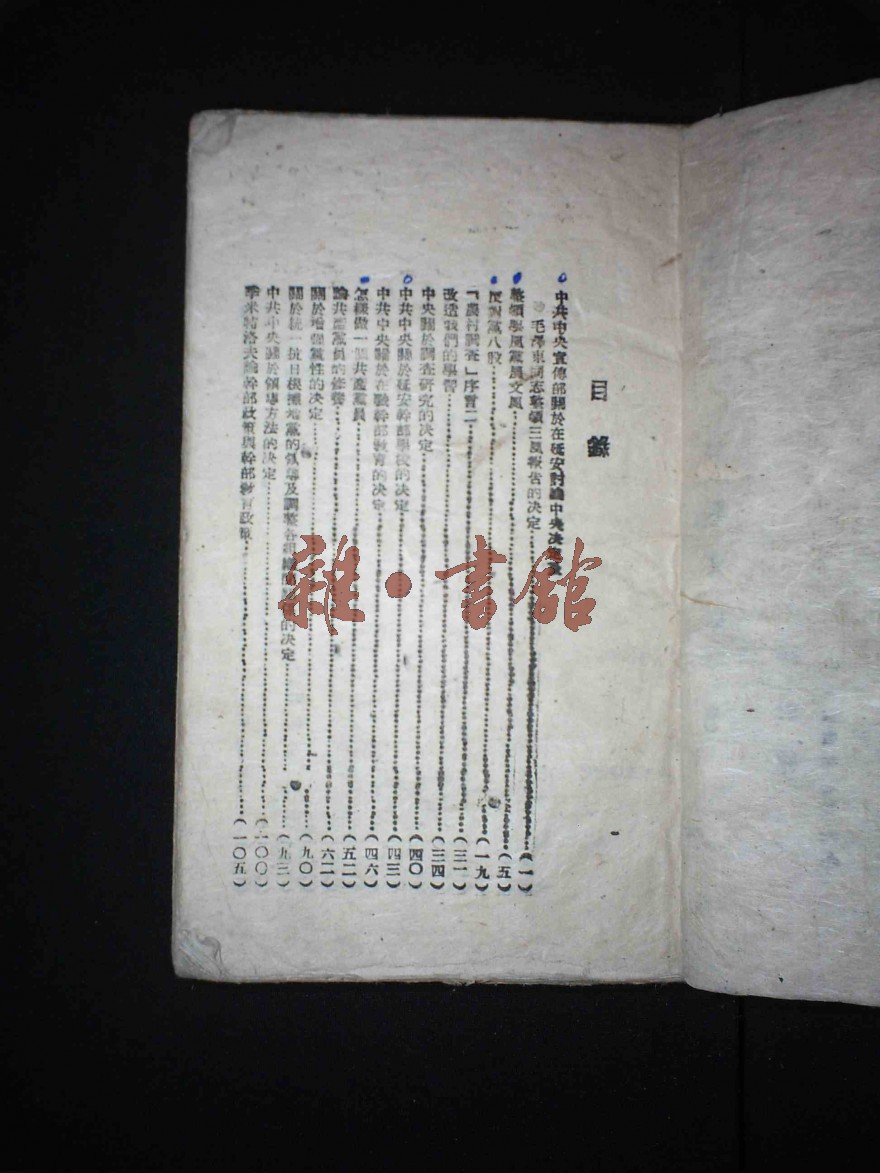 目錄
中共中央宣傳部關於在延安討論中央决定及
毛澤東同志整頓三風報告的决定…………(一)
整頓學風黨風文風…………(五)
反對黨八股…………(一九)
「農村調查」序言二…………(三一)
改造我們的學習…………(三四)
中央關於調查研究的决定…………(四〇)
中共中央關於延安幹部學校的决定…………(四三)
中共中央關於在職幹部教育的决定…………(四六)
怎樣做一個共產黨員…………(五二)
論共產黨員的修養…………(六二)
關於增强黨性的决定…………(九〇)
關於統一抗日根據地黨的領導及調整各組織間關係的决定…………(九三)
中共中央關於領導方法的决定…………(一〇〇)
季米特洛夫論幹部政策與幹部教育政策…………(一〇五)
雜·書館